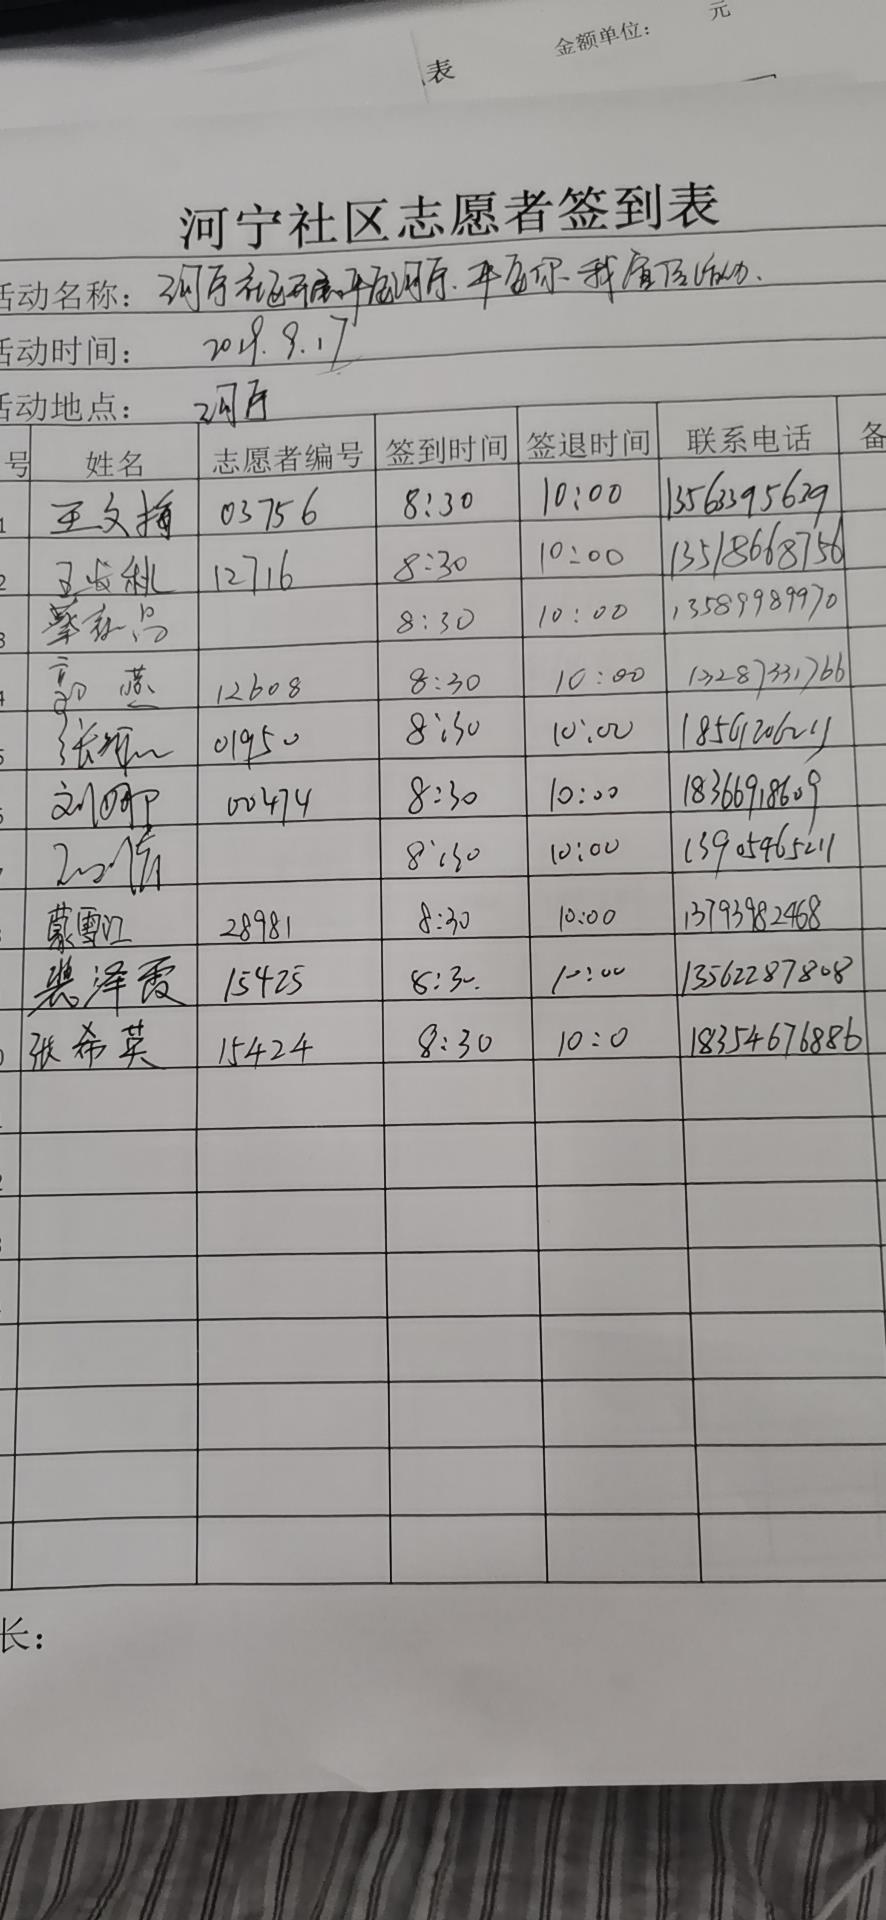 元
金额单位：
表
河宁社区志愿者签到表
活动名称：
活动时间： 2019.9.17
活动地点： 河宁
号 姓名 志愿者编号 签到时间 签退时间 联系电话 备
1 王文梅 03756 8:30 10:00 13563395629
2 12716 8:30 10:00 13518668756
3 8:30 10:00 13589989970
4 郭燕 12608 8:30 10:00 13287331766
5 01950 8:30 10:00
6 刘娜 00474 8:30 10:00 18366918609
8:30 10:00 13905465211
蒙雪江 28981 8:30 10:00 13793982468
裴泽霞 15425 8:30 10:00 13562287808
0 张希英 15424 8:30 10:0 18354676886
1
2
3
长：